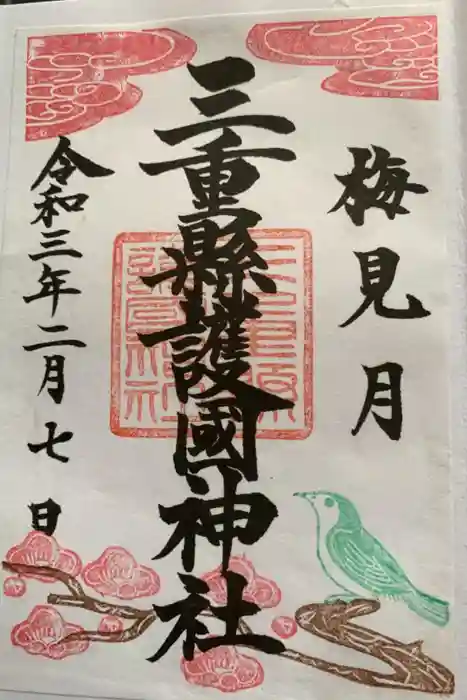 梅見月
三重縣護國神社
令和三年二月七日